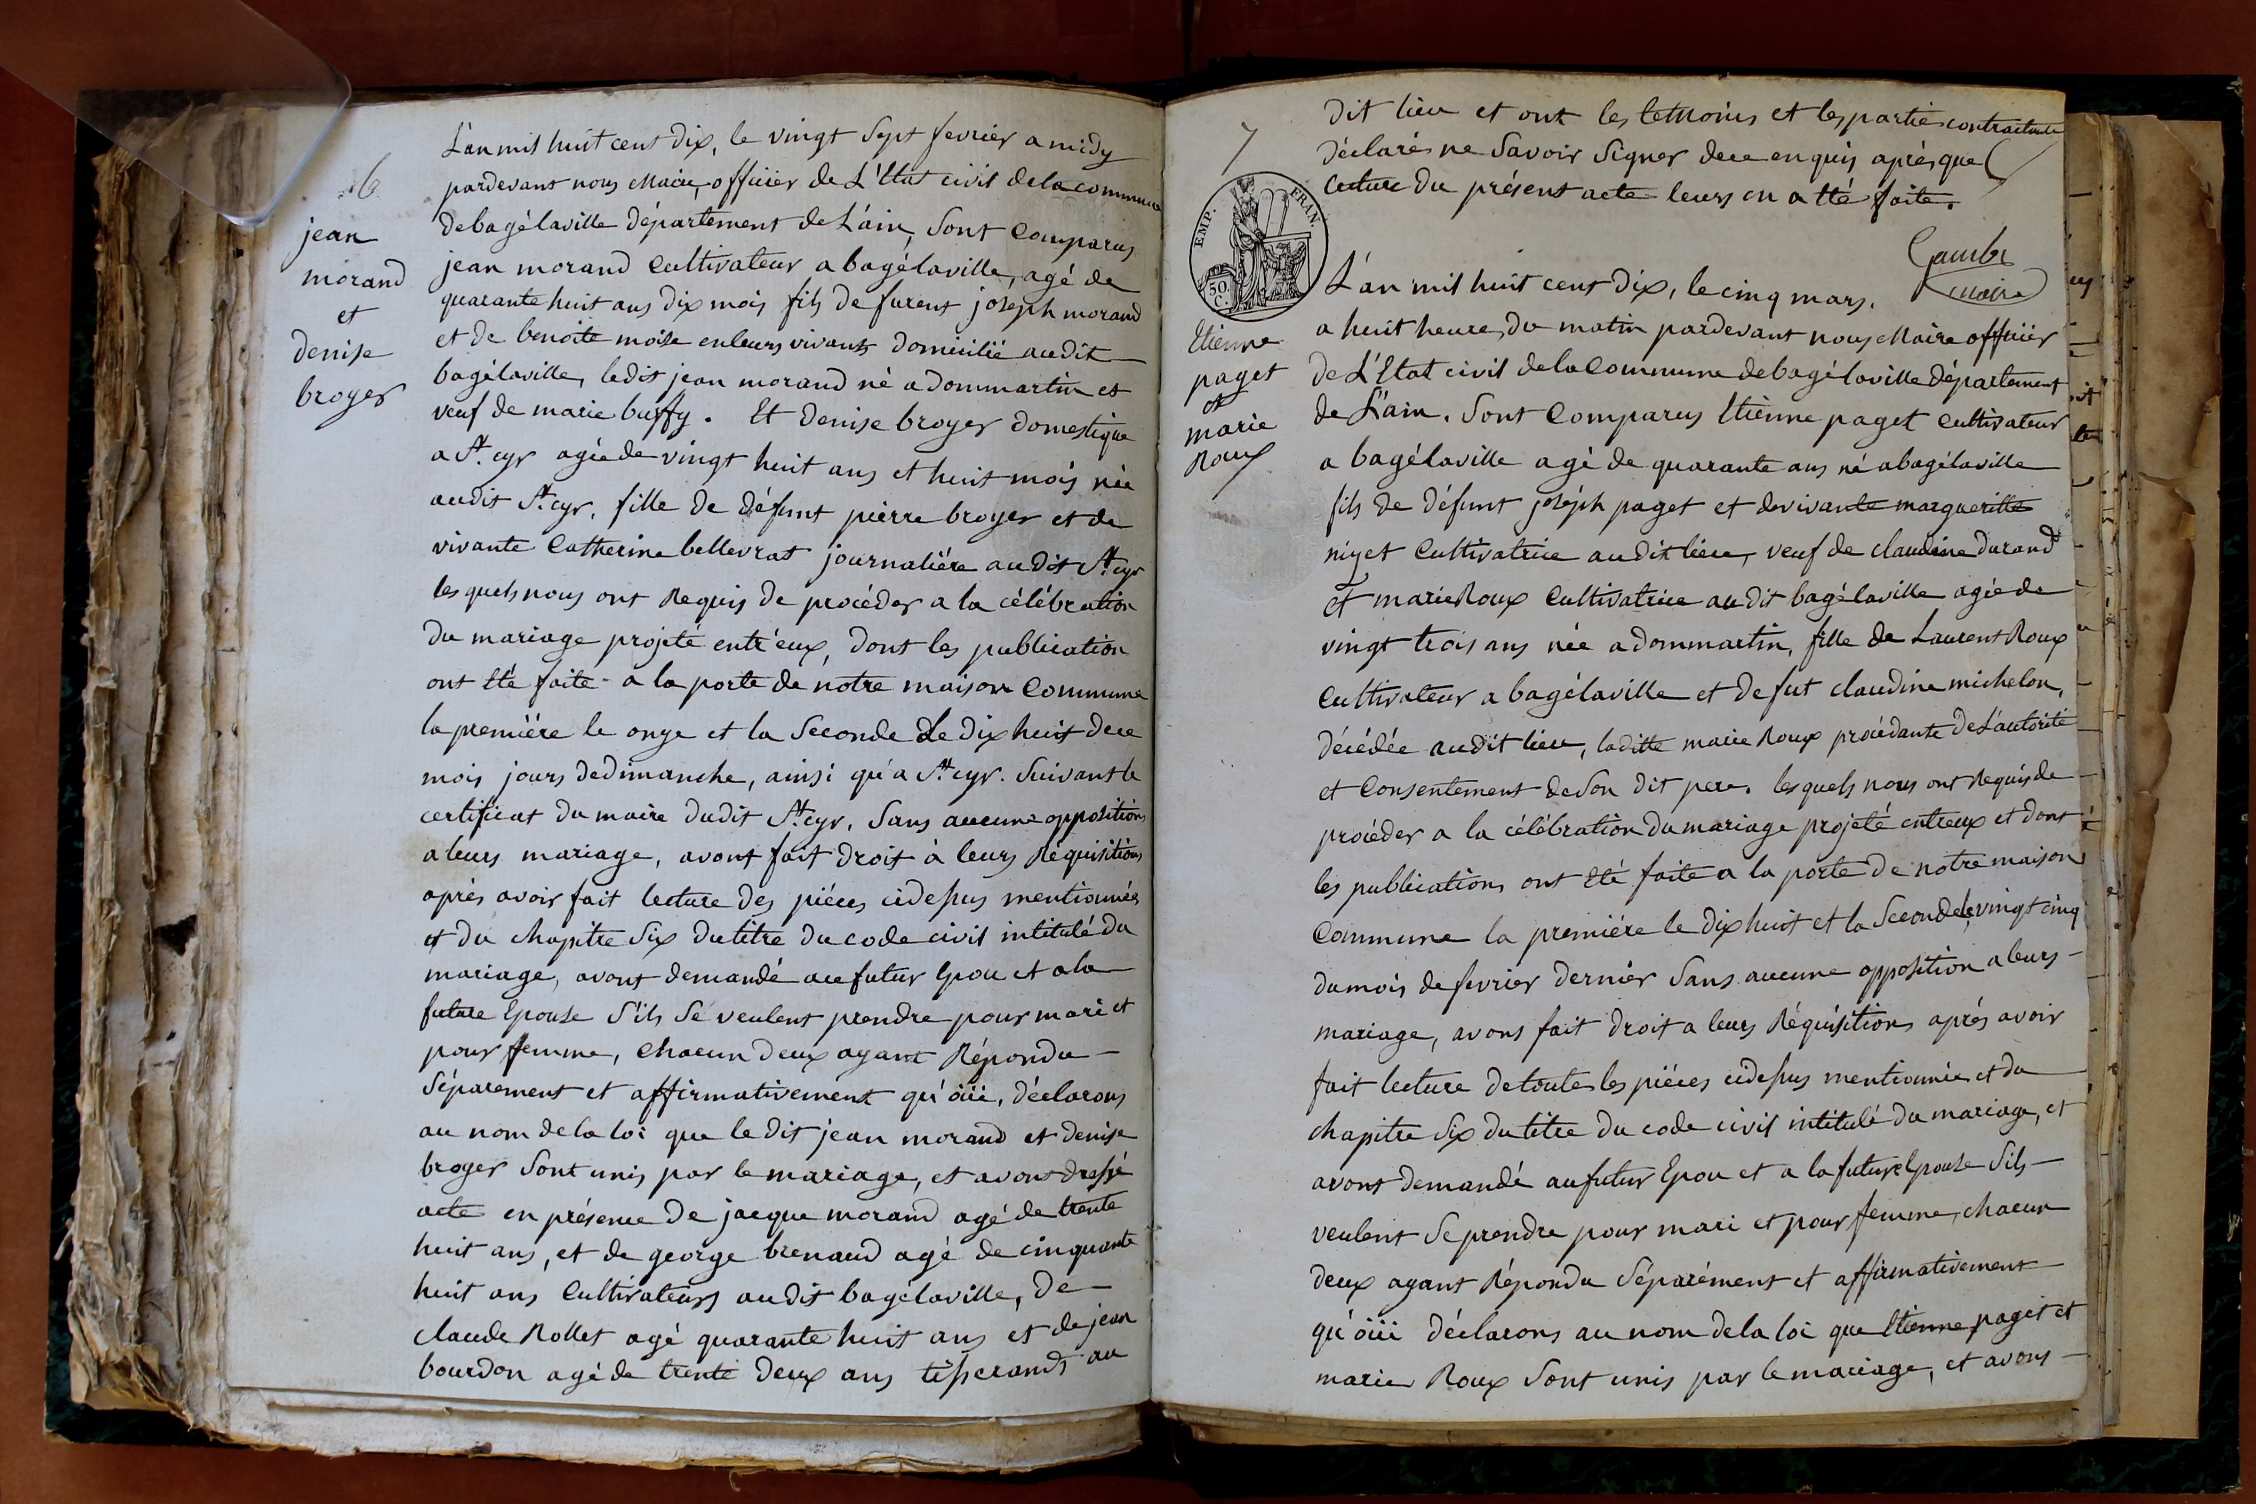 6
jean
morand
et
denise
broyer
L'an mil huit cent dix, le vingt Sept fevrier a midy
pardevant nous Maire, officier de L'Etat civil de la commune
de bagélaville département de L'ain, Sont Comparus
jean morand Cultivateur a bagélaville, agé de
quarante huit ans dix mois fils de furent joseph morand
et de benoite moise en leurs vivants domicilié audit
bagélaville, ledit jean morand né a dommartin et
veuf de marie buffy. Et denise broyer domestique
a St. cyr agée de vingt huit ans et huit mois née
audit St. cyr. fille de défunt pierre broyer et de
vivante Catherine bellevrat journaliére audit St. cyr
les quels nous ont Requis de procéder a la célébration
du mariage projeté entr'eux, dont les publication
ont Eté faite a la porte de notre maison Commune
la premiére le onze et la Seconde le dix huit de ce
mois jours de dimanche, ainsi qu'a St. cyr. Suivant le
certificat du maire dudit St. cyr. Sans aucune opposition
a leurs mariage, avont fait droit à leurs Réquisitions
aprés avoir fait lecture des piéces cidessus mentionnées
et du chapitre Six du titre du code civil intitulé du
mariage, avont demandé au futur Epou et a la
future Epouse S'ils Sé veulent prendre pour mari et
pour femme, Chacun deux ayant Répondu
Séparement et affirmativement qu'oüi, déclarons
au nom de la loi que le dit jean morand et denise
broyer Sont unis par le mariage, et avons dressé
acte en présence de jacque morand agé de trente
huit ans, et de george brenaud agé de cinquante
huit ans Cultivateurs audit bagélaville, De
claude Rollet agé quarante huit ans et de jean
bourdon agé de trente deux ans tisserands au
7
dit lieu et ont les temoins et les partie contractante
déclarés ne Savoir Signer de ce enquis aprés que
lecture du présent acte leurs en a été faite.
maire
EMP. FRAN.
50. C.
Etienne
paget
et
marie
Roux
L'an mil huit cent dix, le cinq mars.
a huit heure du matin pardevant nous Maire officier
de L'Etat civil de la Commune de bagélaville département
de L'ain. Sont Comparus Etienne paget Cultivateur
a bagélaville agé de quarante ans né a bagélaville
fils de défunt joséph paget et de vivante margueritte
niyet Cultivatrice audit lieu, veuf de claudine durand
Et marie Roux Cultivatrice audit bagélaville agée de
vingt trois ans née a dommartin, fille de Laurent Roux
Cultivateur a bagélaville et de fut claudine michelon,
décédée audit lieu, laditte marie Roux procédante de L'autorité
et Consentement de Son dit pere. les quels nous ont Requis de
procéder a la célébration du mariage projeté entreux et dont
les publications ont Eté faite a la porte de notre maison
Commune la premiére le dix huit et la Seconde le vingt cinq
du mois de fevrier dernier Sans aucune opposition a leurs
mariage, avons fait droit a leurs Réquisitions aprés avoir
fait lecture de toutes les piéces cidessus mentionnée et du
chapitre Six du titre du code civil intitulé du mariage, et
avons demandé au futur Epou et a la future Epouse S'ils
veulent Se prendre pour mari et pour femme, chacun
deux ayant Répondu Séparément et affirmativement
qu'oüi déclarons au nom de la loi que Etienne paget et
marie Roux Sont unis par le mariage, et avons